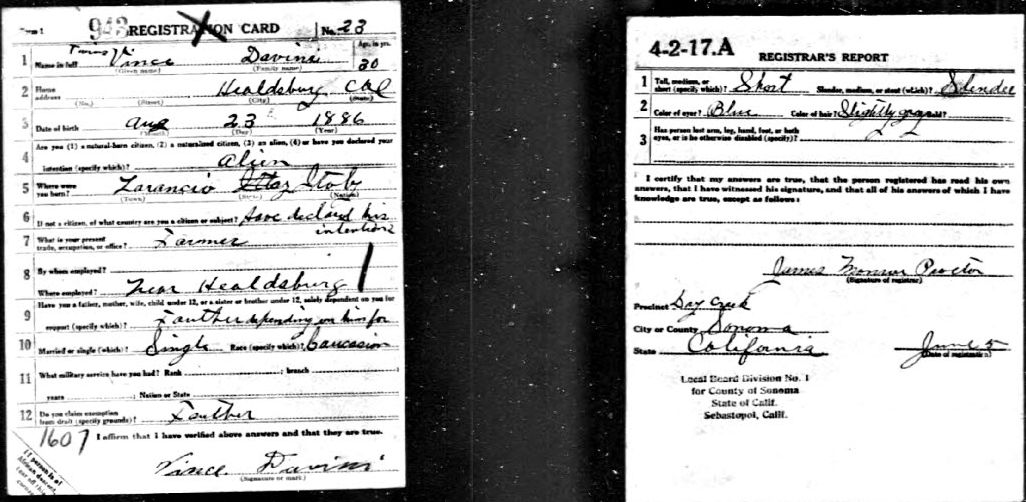 Form 1 943 REGISTRATION CARD No. 23
1 Name in full Vince Davini Age, in yrs. 30
(Given name) (Family name)
2 Home address Healdsburg Cal
(No.) (Street) (City) (State)
3 Date of birth Aug 23 1886
(Month) (Day) (Year)
4 Are you (1) a natural-born citizen, (2) a naturalized citizen, (3) an alien, (4) or have you declared your
intention (specify which)? Alien
5 Where were you born? Zarancio Itaz Italy
(Town) (State) (Nation)
6 If not a citizen, of what country are you a citizen or subject? have declared his
intention
7 What is your present trade, occupation, or office? Farmer
8 By whom employed?
Where employed? Near Healdsburg
9 Have you a father, mother, wife, child under 12, or a sister or brother under 12, solely dependent on you for
support (specify which)? Fauther depending on him for
10 Married or single (which)? Single Race (specify which)? Caucasion
11 What military service have you had? Rank ; branch ;
years ; Nation or State
12 Do you claim exemption from draft (specify grounds)? Fauther
1607 I affirm that I have verified above answers and that they are true.
Vince Davini
(Signature or mark)
If person is of African descent,
4-2-17.A REGISTRAR'S REPORT
1 Tall, medium, or short (specify which)? Short Slender, medium, or stout (which)? Slender
2 Color of eyes? Blue Color of hair? Slightly gray Bald?
3 Has person lost arm, leg, hand, foot, or both eyes, or is he otherwise disabled (specify)?
I certify that my answers are true, that the person registered has read his own
answers, that I have witnessed his signature, and that all of his answers of which I have
knowledge are true, except as follows:
James Monroe Proctor
(Signature of registrar)
Precinct Dry Creek
City or County Sonoma
State California June 5
(Date of registration)
Local Board Division No. 1
for County of Sonoma
State of Calif.
Sebastopol, Calif.